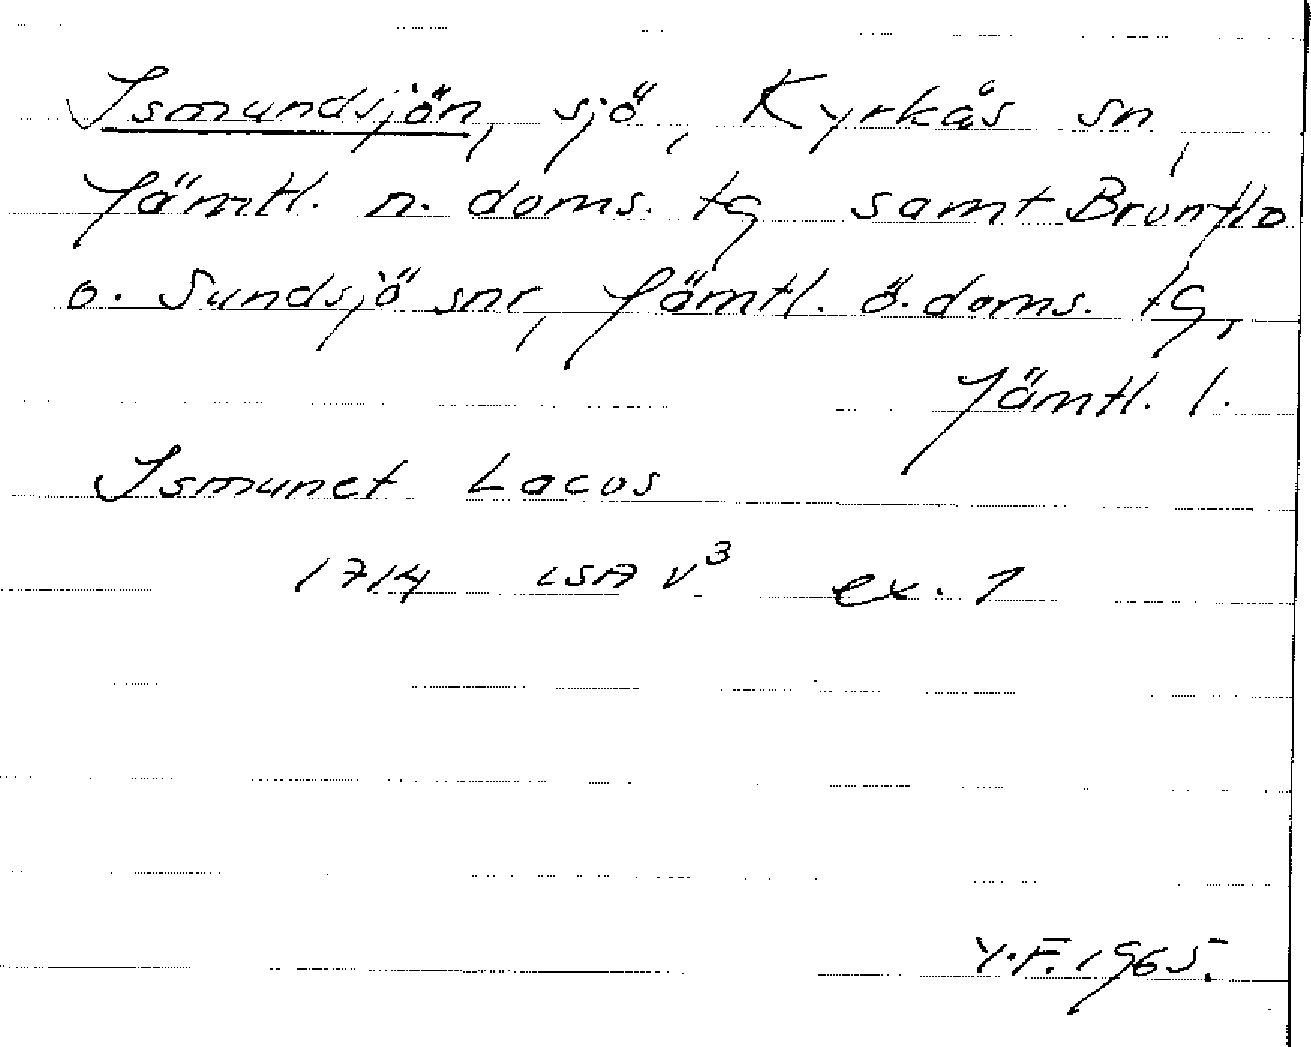 Ismundsjön, sjö, Kyrkås sn,
Jämtl. n. doms. tg samt Brunflo
o. Sundsjö snr, Jämtl. ö. doms. tg,
Jämtl. l.
Ismunet Lacus
1714 LSA V³ ex. 1
Y.F. 1965.